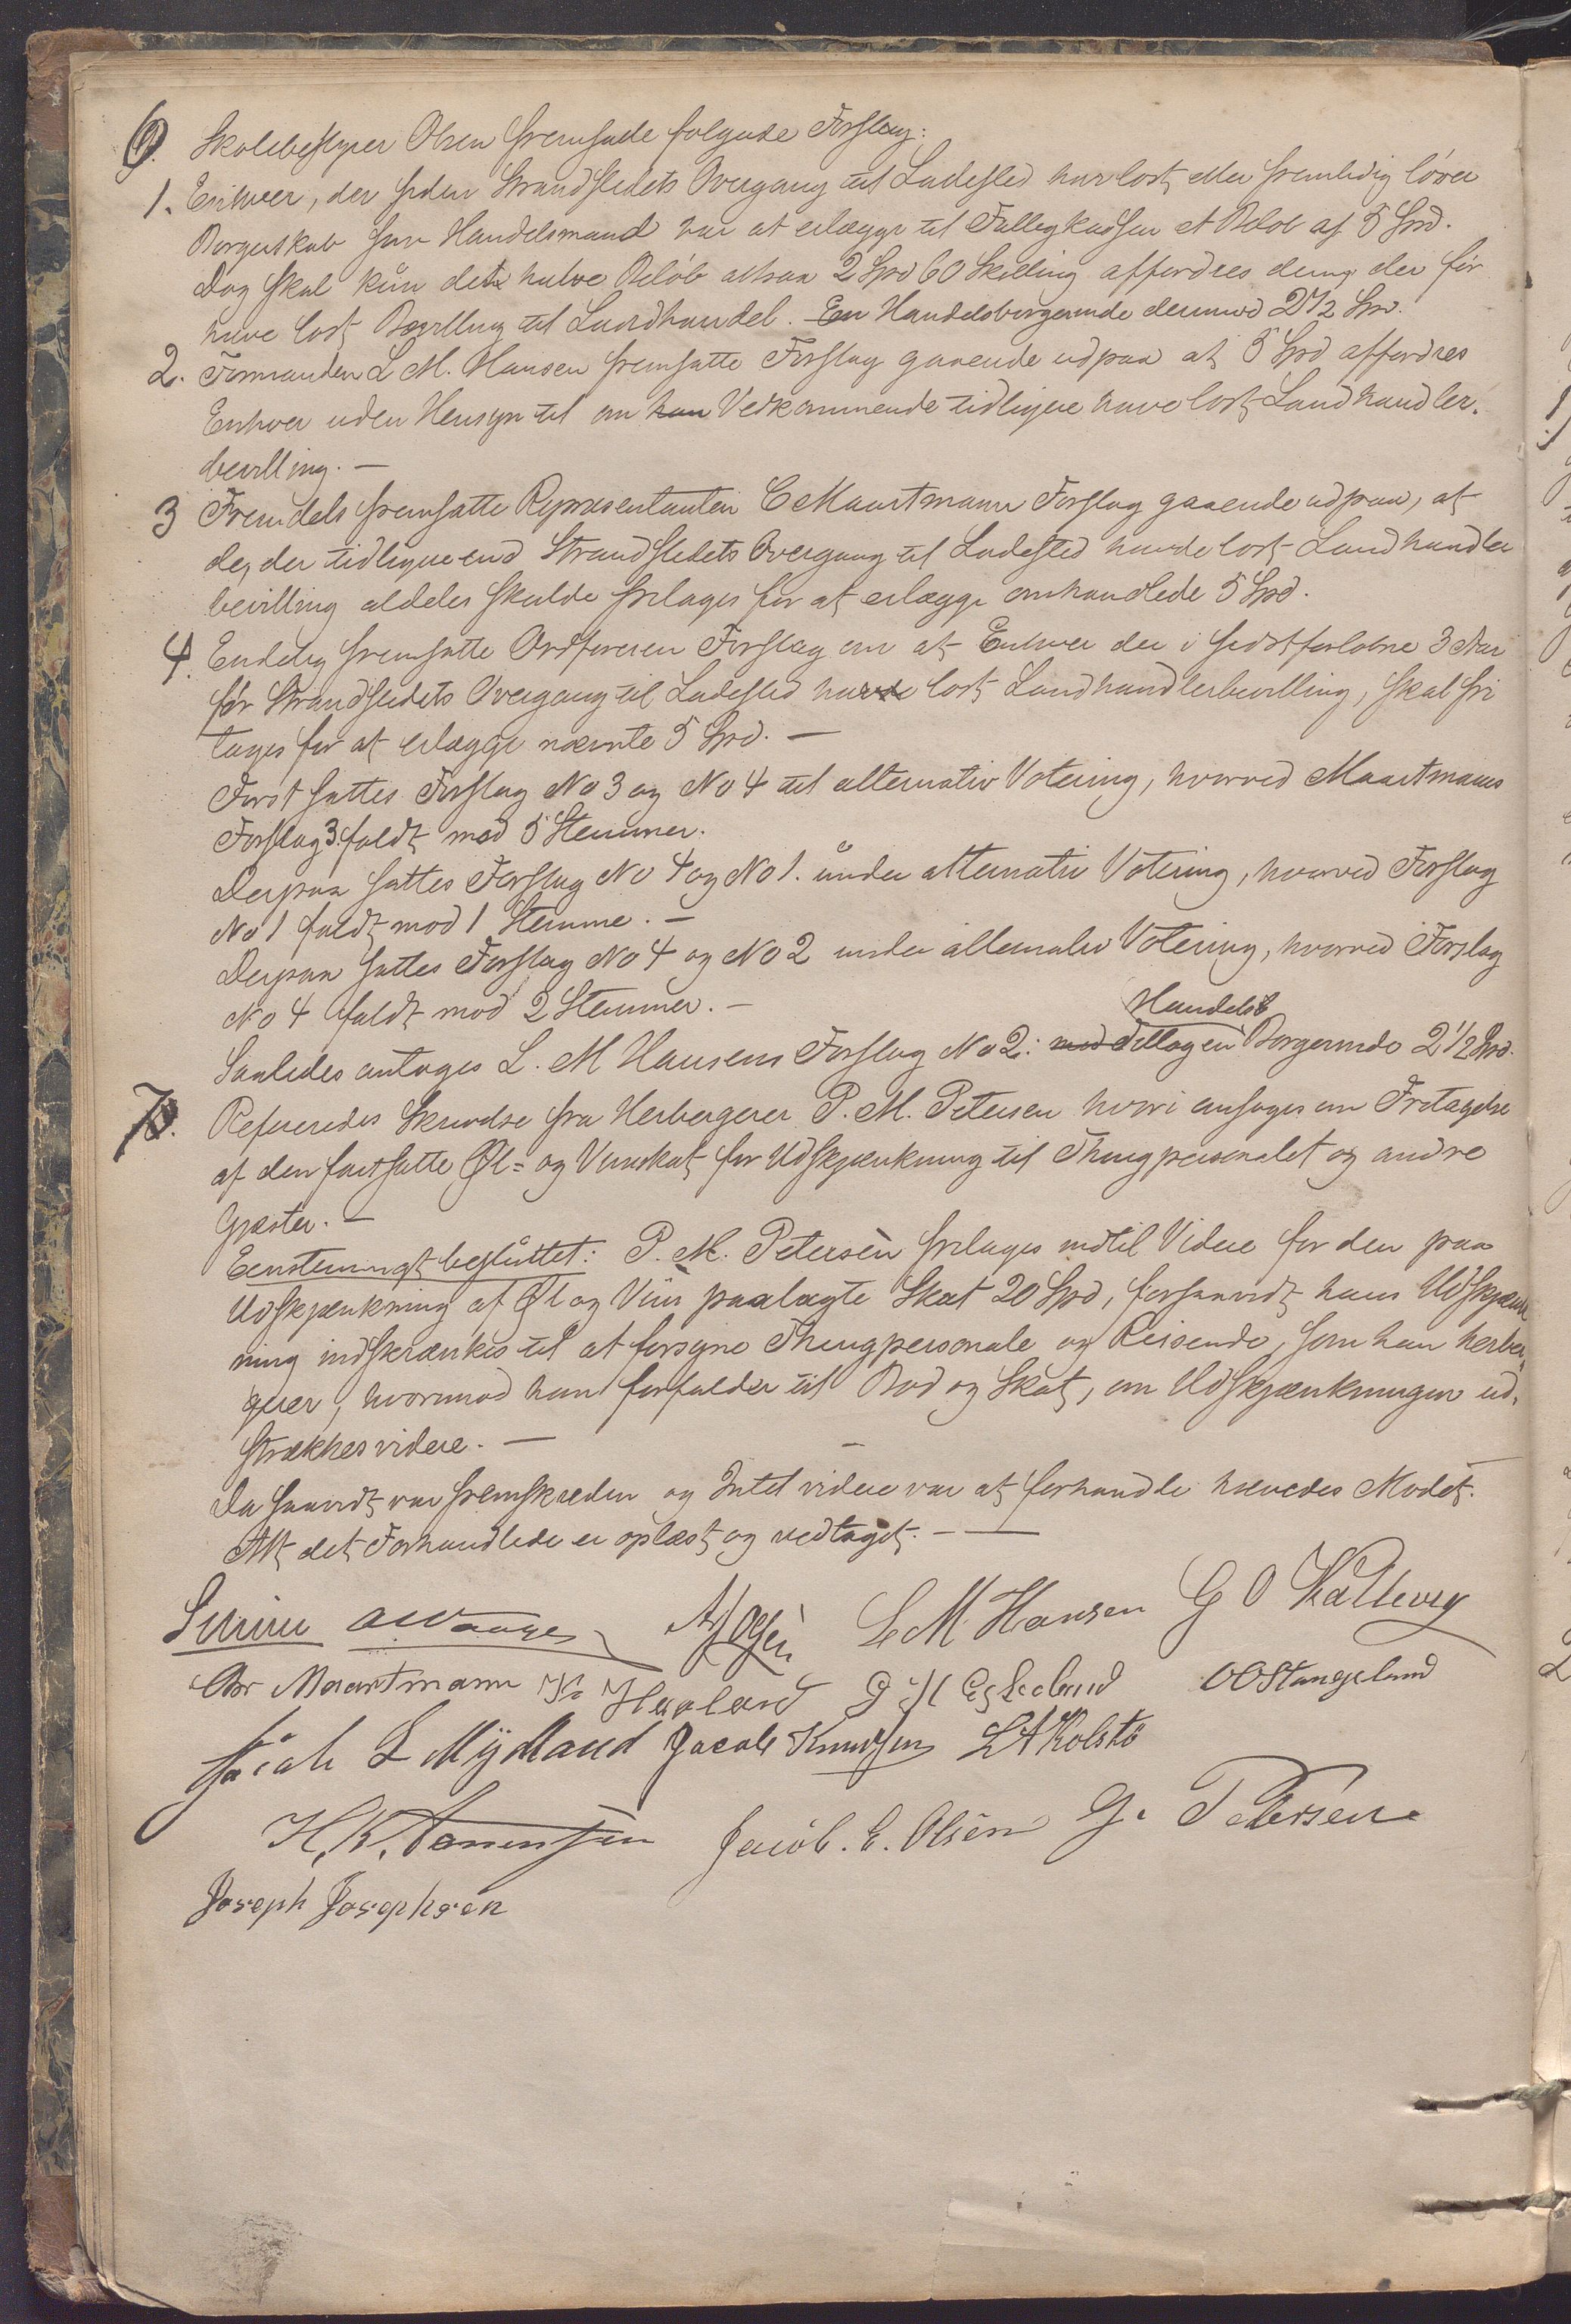 6. Skolebestyrer Olsen fremsatte følgende Forslag:
1. Enhver, der siden Strandstedets Overgang til Ladested har løst eller fremtidig løser
Borgerskab som Handelsmand har at erlægge til Fattigkassen et Beløb af 5 Spd.
Dog skal kun det halve Beløb altsaa 2 Spd 60 Skilling affordres dem, der før
have løst Bevilling til Landhandel. En Handelsborgerinde derimod 2 1/2 Spd.
2. Formanden L M. Hansen fremsatte Forslag gaaende ud paa at 5 Spd affordres
Enhver uden Hensyn til om han Vedkommende tidligere have løst Landhandler-
bevilling. —
3 Fremdels fremsatte Repræsentanten C Maartmann Forslag gaaende ud paa, at
de, der tidligere end Strandstedets Overgang til Ladested havde løst Landhandler
bevilling aldeles skulde fritages for at erlægge omhandlede 5 Spd.
4. Endelig fremsatte Ordføreren Forslag om at Enhver der i sidstforløbne 3 Aar
før Strandstedets Overgang til Ladested havde løst Landhandlerbevilling, skal fri
tages for at erlægge nævnte 5 Spd. —
Først sattes Forslag No 3 og No 4 til alternativ Votering, hvorved Maartmanns
Forslag 3 faldt mod 5 Stemmer.
Derpaa sattes Forslag No 4 og No 1. under alternativ Votering, hvorved Forslag
No 1 faldt mod 1 Stemme. —
Derpaa sattes Forslag No 4 og No 2 under alternativ Votering, hvorved Forslag
No 4 faldt mod 2 Stemmer. —
Saaledes antoges L. M Hansens Forslag No 2: med Tillæg en Handelsborgerinde 2 1/2 Spd.
7. Refereredes Skrivelse fra Herbergerer P. M. Petersen hvori ansøges om Fritagelse
af den fastsatte Øl= og Vinskat for Udskjænkning til Thingpersonalet og andre
Gjæster. —
Eenstemmigt besluttet: P. M. Petersen fritages indtil Videre for den paa
Udskjænkning af Øl og Viin paalagte Skat 20 Spd, forsaavidt hans Udskjænk
ning indskrænkes til at forsyne Thingpersonale og Reisende, som han herber-
gerer, hvorimod han forfalder til Bod og Skat, om Udskjænkningen ud-
strækkes videre. —
Da saavidt var fremskreden og Intet videre var at forhandle hævedes Mødet.
Alt det Forhandlede er oplæst og vedtaget. — —
L M Hansen G O Kallevig
Chr Maartmann Haaland OO Stangeland
Jacob L Mydland Jacob Knudsen L A Kolstø
Jacob. E. Olsen G. Petersen
Joseph Josephsen